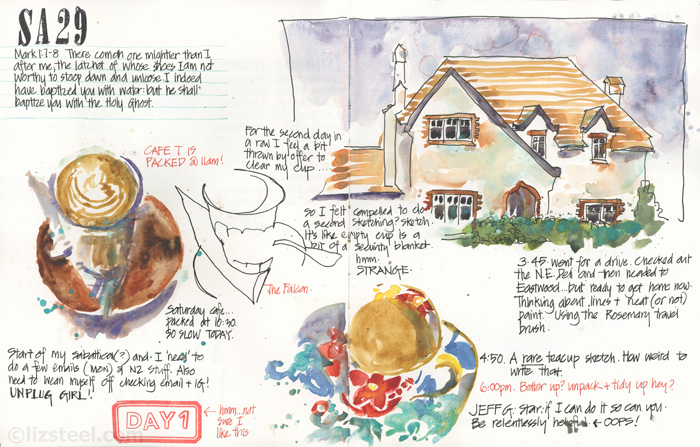 SA29
Mark 1:7-8 There cometh one mightier than I
after me, the latchet of whose shoes I am not
worthy to stoop down and unloose. I indeed
have baptized you with water: but he shall
baptize you with the Holy Ghost.
CAFE T IS
PACKED @ 11am!
For the second day in
a raw I feel a bit
thrown by offer to
clear my cup....
So I felt compelled to do
a second sketching? sketch.
It's like empty cup is a
bit of a security blanket.
hmm.
STRANGE.
The Falcon.
Saturday cafe...
packed at 10:30.
SO SLOW TODAY.
Start of my sabbatical(?) and I need to
do a few emails (MON) of NZ stuff. Also
need to wean myself off checking email + IG!
UNPLUG GIRL!
DAY 1
← hmm..not
sure I
like this
3.45. Went for a drive. Checked out
the N.E. and then headed to
Eastwood... but ready to get home now.
Thinking about lines + neat (or not)
paint. Using the Rosemary travel
brush.
4:50. A rare teacup sketch. How weird to
write that.
6:00pm. Better up? unpack + tidy up hey?
JEFF G: star: if I can do it so can you.
Be relentlessly helpful ← OOPS!
©lizsteel.com